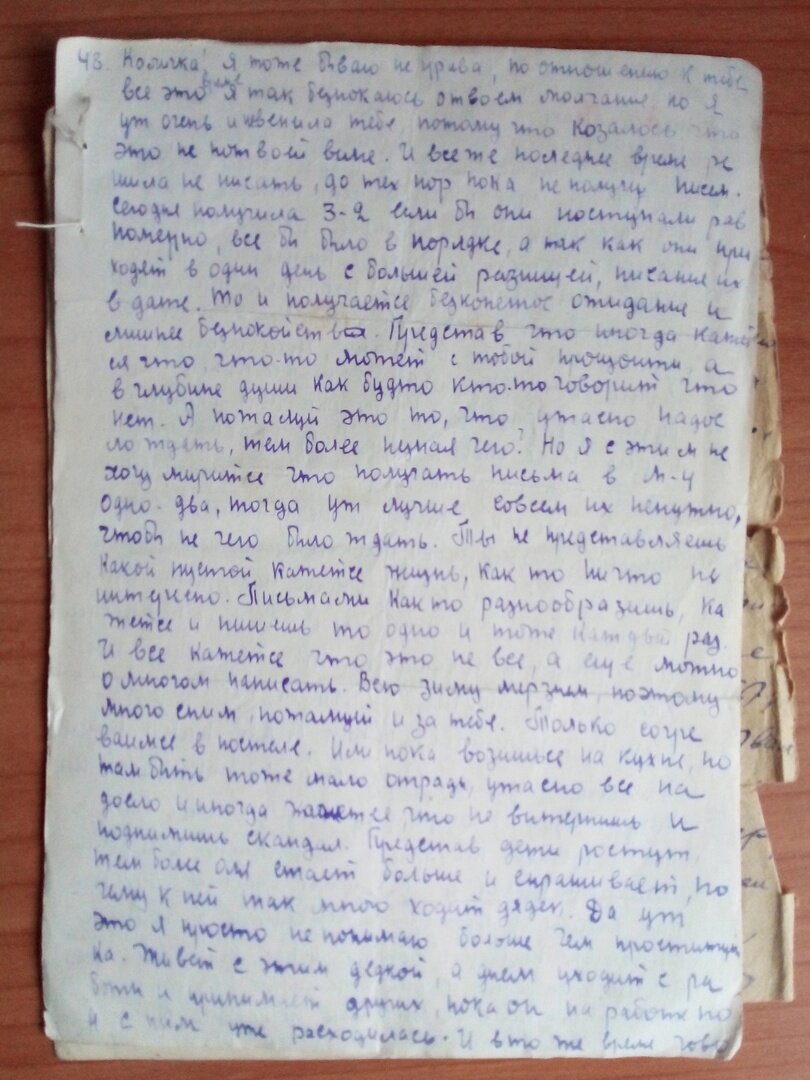 43. Количка! Я тоже бываю не права, по отношению к тебе
все это даже я так безпокаюсь о твоем молчание, но я
уж очень и не венила тебе, потому что козалось что
это не по твоей вине. И все же последнее время ре
шила не писать, до тех пор пока не получу писем.
Сегодня получила 3-2 если би они поступали рав
номерно, все би било в порядке, а так как они при
ходят в один день с большей разницей, писания их
в дате. То и получаетсе безконетое ожидание и
лишнее безпокойства. Представ что иногда кажет
ся что, что-то может с тобой произойти, а
в глубине души как будто кто-то говорит что
нет. А пожалуй это то, что ужасно надое
ло ждать, тем более незная чего? Но я с этим не
хочу миритсе что получать письма в м-ц
одно-два, тогда уж лучше совсем их ненужно,
чтоби не чего било ждать. Ты не представляешь
какой пустой кажетсе жизнь, как то ничто не
интересно. Письмами как то разнообразишь, ка
жетсе и пишешь то одно и тоже каждый раз.
И все кажетсе что это не все, а еще можно
о многом написать. Всю зиму мерзнем, поэтому
много спим, пожалуй и за тебя. Только согре
ваимсе в постеле. Или пока возишьсе на кухне, но
там бить тоже мало отради, ужасно все на
доело и иногда кажетсе, что не витерпишь и
поднимишь скандал. Представ дети ростут,
тем боле Оля стает больше и спрашивает, по
чему к ней так много ходит дядек. Да уж
это я просто не понимаю больше чем проститут
ка. Живет с этим дедкой, а днем уходит с ра
боти и принимает других, пока он на работе но
и с ним уже расходилась. И в то же время гово